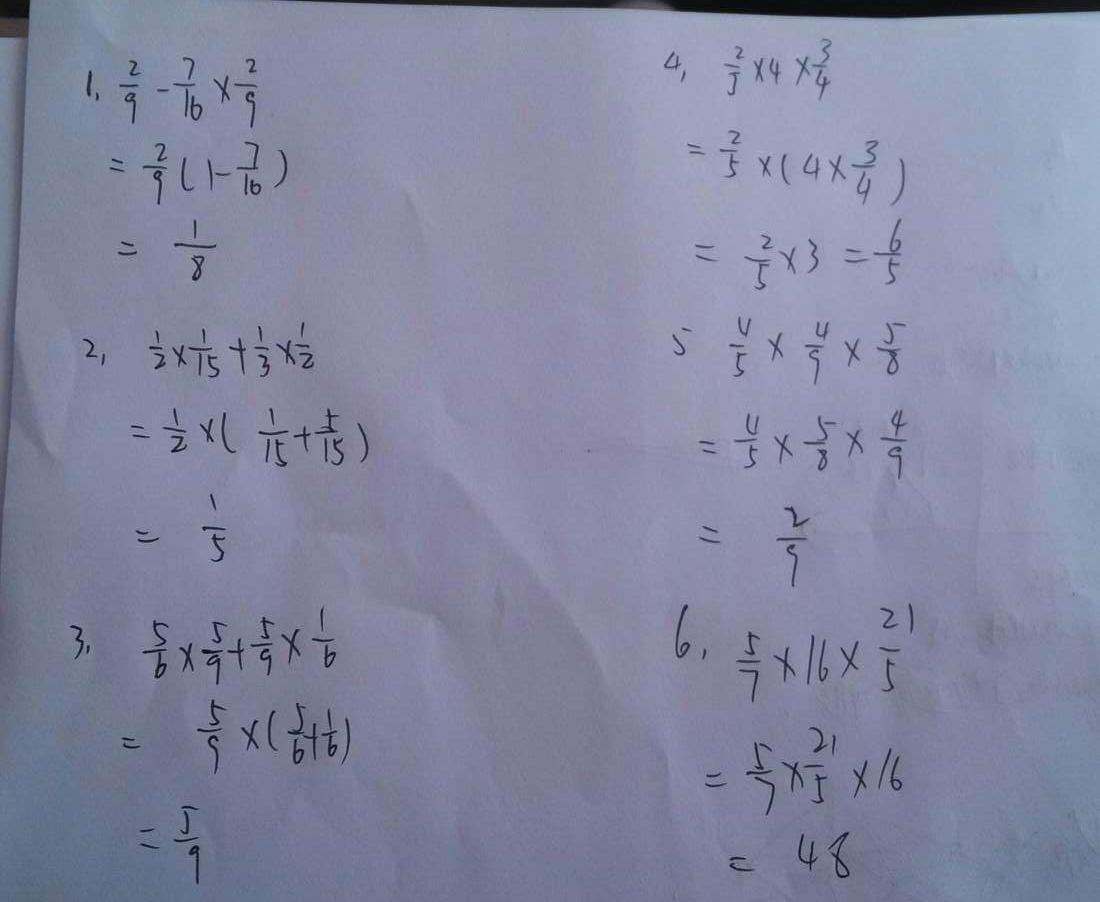 1. 2/9 - 7/16 × 2/9
= 2/9 (1 - 7/16)
= 1/8
2, 1/2 × 1/15 + 1/3 × 1/2
= 1/2 × ( 1/15 + 5/15 )
= 1/5
3, 5/6 × 5/9 + 5/9 × 1/6
= 5/9 × ( 5/6 + 1/6 )
= 5/9
4, 2/5 × 4 × 3/4
= 2/5 × ( 4 × 3/4 )
= 2/5 × 3 = 6/5
5 4/5 × 4/9 × 5/8
= 4/5 × 5/8 × 4/9
= 2/9
6. 5/7 × 16 × 21/5
= 5/7 × 21/5 × 16
= 48